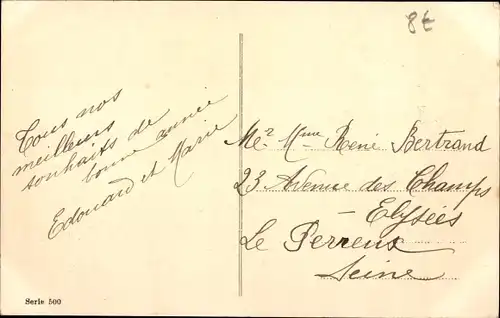 8€
Tous nos
meilleurs
souhaits de
bonne année
Edouard et Marie
Mr Mme René Bertrand
23 Avenue des Champs
Elysées
Le Perreux
Seine
Serie 500